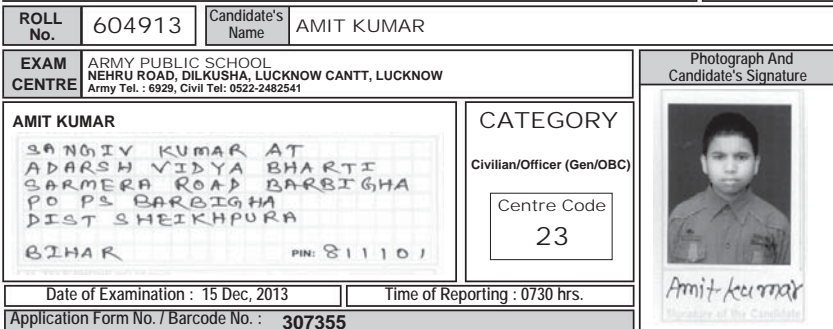 ROLL No. 604913 Candidate's Name AMIT KUMAR
EXAM CENTRE
ARMY PUBLIC SCHOOL
NEHRU ROAD, DILKUSHA, LUCKNOW CANTT, LUCKNOW
Army Tel. : 6929, Civil Tel: 0522-2482541
Photograph And
Candidate's Signature
AMIT KUMAR
SANGIV KUMAR AT
ADARSH VIDYA BHARTI
SARMERA ROAD BARBIGHA
PO PS BARBIGHA
DIST SHEIKHPURA
BIHAR PIN: 811101
CATEGORY
Civilian/Officer (Gen/OBC)
Centre Code
23
Amit kumar
Signature of the Candidate
Date of Examination : 15 Dec, 2013 Time of Reporting : 0730 hrs.
Application Form No. / Barcode No. : 307355